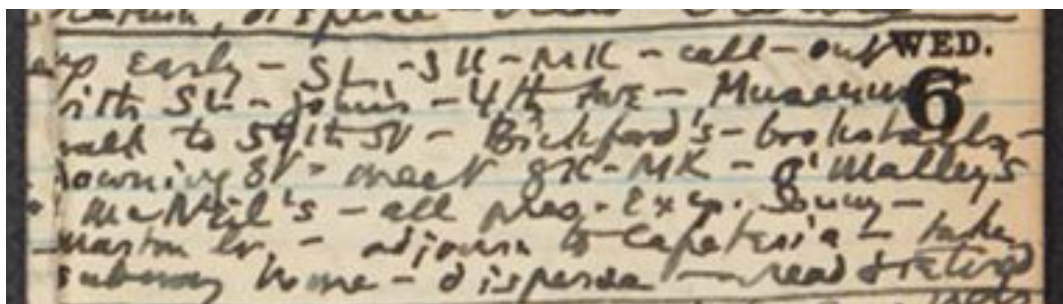 up early - SL - SK - MK - call - out WED.
with SL - John's - 4th Ave - Museum 6
walk to 59th St - Bickford's - bookstalls -
Downing St - meet GK - MK - O'Malley's
McNeil's - all pres. exc. Sonny -
adjourn to cafeteria - take
subway home - disperse - read & retired